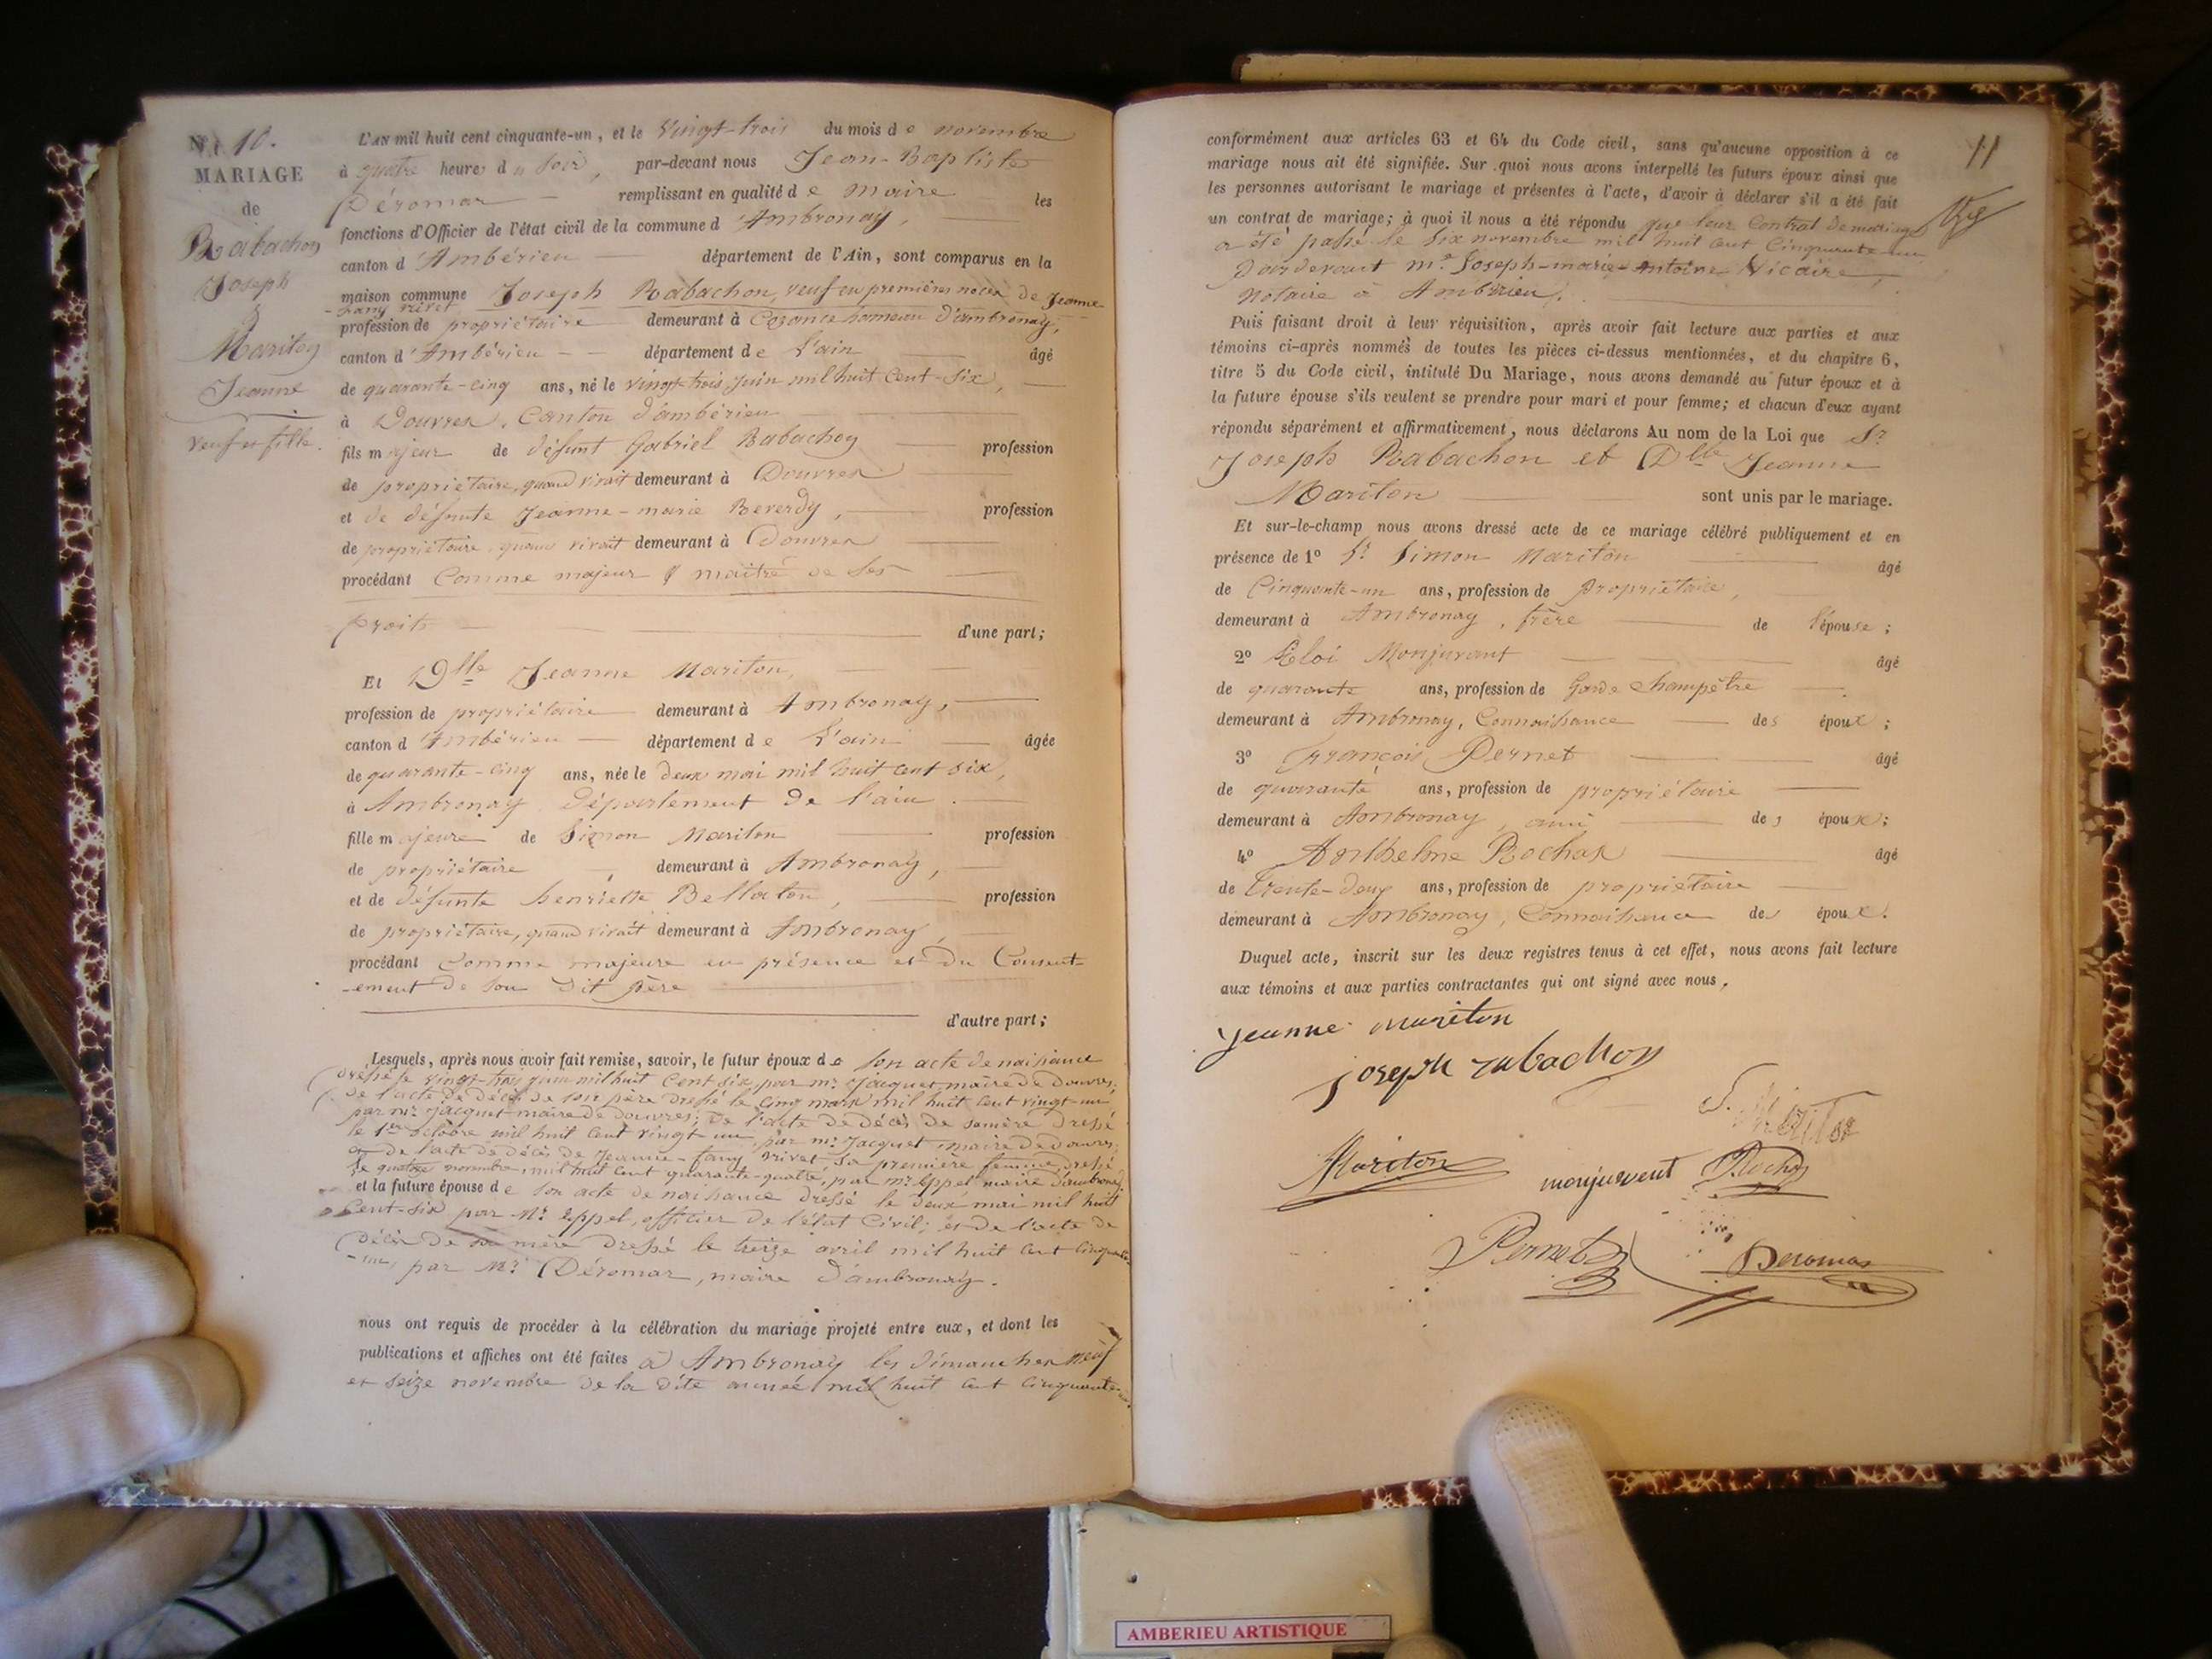 N.º 10.
MARIAGE
de
Rabachon
Joseph
&
Mariton
Jeanne
veuf et fille.
L'AN mil huit cent cinquante-un, et le vingt-trois du mois de novembre
à quatre heures du soir, par-devant nous Jean-Baptiste
Déromas remplissant en qualité de maire les
fonctions d'Officier de l'état civil de la commune d'Ambronay,
canton d'Ambérieu département de l'Ain, sont comparus en la
maison commune Joseph Rabachon, veuf en premières noces de Jeanne
-fany rivet
profession de propriétaire demeurant à hameau d'ambronay,
canton d'Ambérieu département de l'ain âgé
de quarante-cinq ans, né le vingt-trois juin mil huit cent-six,
à Douvres, Canton d'ambérieu
fils majeur de défunt Gabriel Rabachon profession
de propriétaire, quand vivait demeurant à Douvres
et de défunte Jeanne-marie Reverdy, profession
de propriétaire quand vivait demeurant à Douvres
procédant Comme majeur & maître de ses
Droits d'une part;
Et Dlle Jeanne Mariton,
profession de propriétaire demeurant à Ambronay,
canton d'Ambérieu département de l'ain âgée
de quarante-cinq ans, née le deux mai mil huit cent six,
à Ambronay Département de l'ain.
fille majeure de Simon Mariton profession
de propriétaire demeurant à Ambronay,
et de défunte henriette Bellaton, profession
de propriétaire, quand vivait demeurant à Ambronay,
procédant Comme majeure en présence et du Consent-
-ement de son dit père
d'autre part;
Lesquels, après nous avoir fait remise, savoir, le futur époux de son acte de naissance
dressé le vingt-trois juin mil huit Cent six, par mr. Jacquet maire de Douvres,
de l'acte de décès de son père dressé le cinq mars mil huit cent vingt-un
par mr Jacquet maire de douvres; de l'acte de décès de sa mère dressé
le 1er octobre mil huit cent vingt-un, par mr. Jacquet maire de douvres;
et de l'acte de décès de Jeanne-fany rivet, sa première femme, dressé
le quatorze novembre, mil huit cent quarante-quatre, par mr. Eppel maire d'ambronay.
et la future épouse de son acte de naissance dressé le deux mai mil huit
Cent-six par Mr. Eppel, officier de l'état Civil; et de l'acte de
décès de sa mère dressé le treize avril mil huit cent cinquante
-un, par Mr. Déromas, maire d'ambronay.
nous ont requis de procéder à la célébration du mariage projeté entre eux, et dont les
publications et affiches ont été faites à Ambronay les dimanches neuf
et seize novembre de la dite année mil huit cent cinquante-un,
11
conformément aux articles 63 et 64 du Code civil, sans qu'aucune opposition à ce
mariage nous ait été signifiée. Sur quoi nous avons interpellé les futurs époux ainsi que
les personnes autorisant le mariage et présentes à l'acte, d'avoir à déclarer s'il a été fait
un contrat de mariage; à quoi il nous a été répondu que leur Contrat de mariage
a été passé le six novembre mil huit cent Cinquante-un
Par devant me. Joseph-marie-Antoine Vicaire,
Notaire à Ambérieu.
Puis faisant droit à leur réquisition, après avoir fait lecture aux parties et aux
témoins ci-après nommés de toutes les pièces ci-dessus mentionnées, et du chapitre 6,
titre 5 du Code civil, intitulé Du Mariage, nous avons demandé au futur époux et à
la future épouse s'ils veulent se prendre pour mari et pour femme; et chacun d'eux ayant
répondu séparément et affirmativement, nous déclarons Au nom de la Loi que Sr.
Joseph Rabachon et Dlle Jeanne
Mariton sont unis par le mariage.
Et sur-le-champ nous avons dressé acte de ce mariage célébré publiquement et en
présence de 1º Sr. Simon Mariton âgé
de Cinquante-un ans, profession de propriétaire,
demeurant à Ambronay, frère de l'épouse;
2º Eloi Monjuvant âgé
de quarante ans, profession de Garde champêtre
demeurant à Ambronay, Connaissance des époux;
3º François Pernet âgé
de quarante ans, profession de propriétaire
demeurant à Ambronay, ami des époux;
4º Anthelme Rochas âgé
de Trente-deux ans, profession de propriétaire
demeurant à Ambronay, Connaissance des époux.
Duquel acte, inscrit sur les deux registres tenus à cet effet, nous avons fait lecture
aux témoins et aux parties contractantes qui ont signé avec nous.
Jeanne mariton
joseph rabachon
S. Mariton
Mariton monjuvent Rochas
Pernet Deromas
AMBERIEU ARTISTIQUE